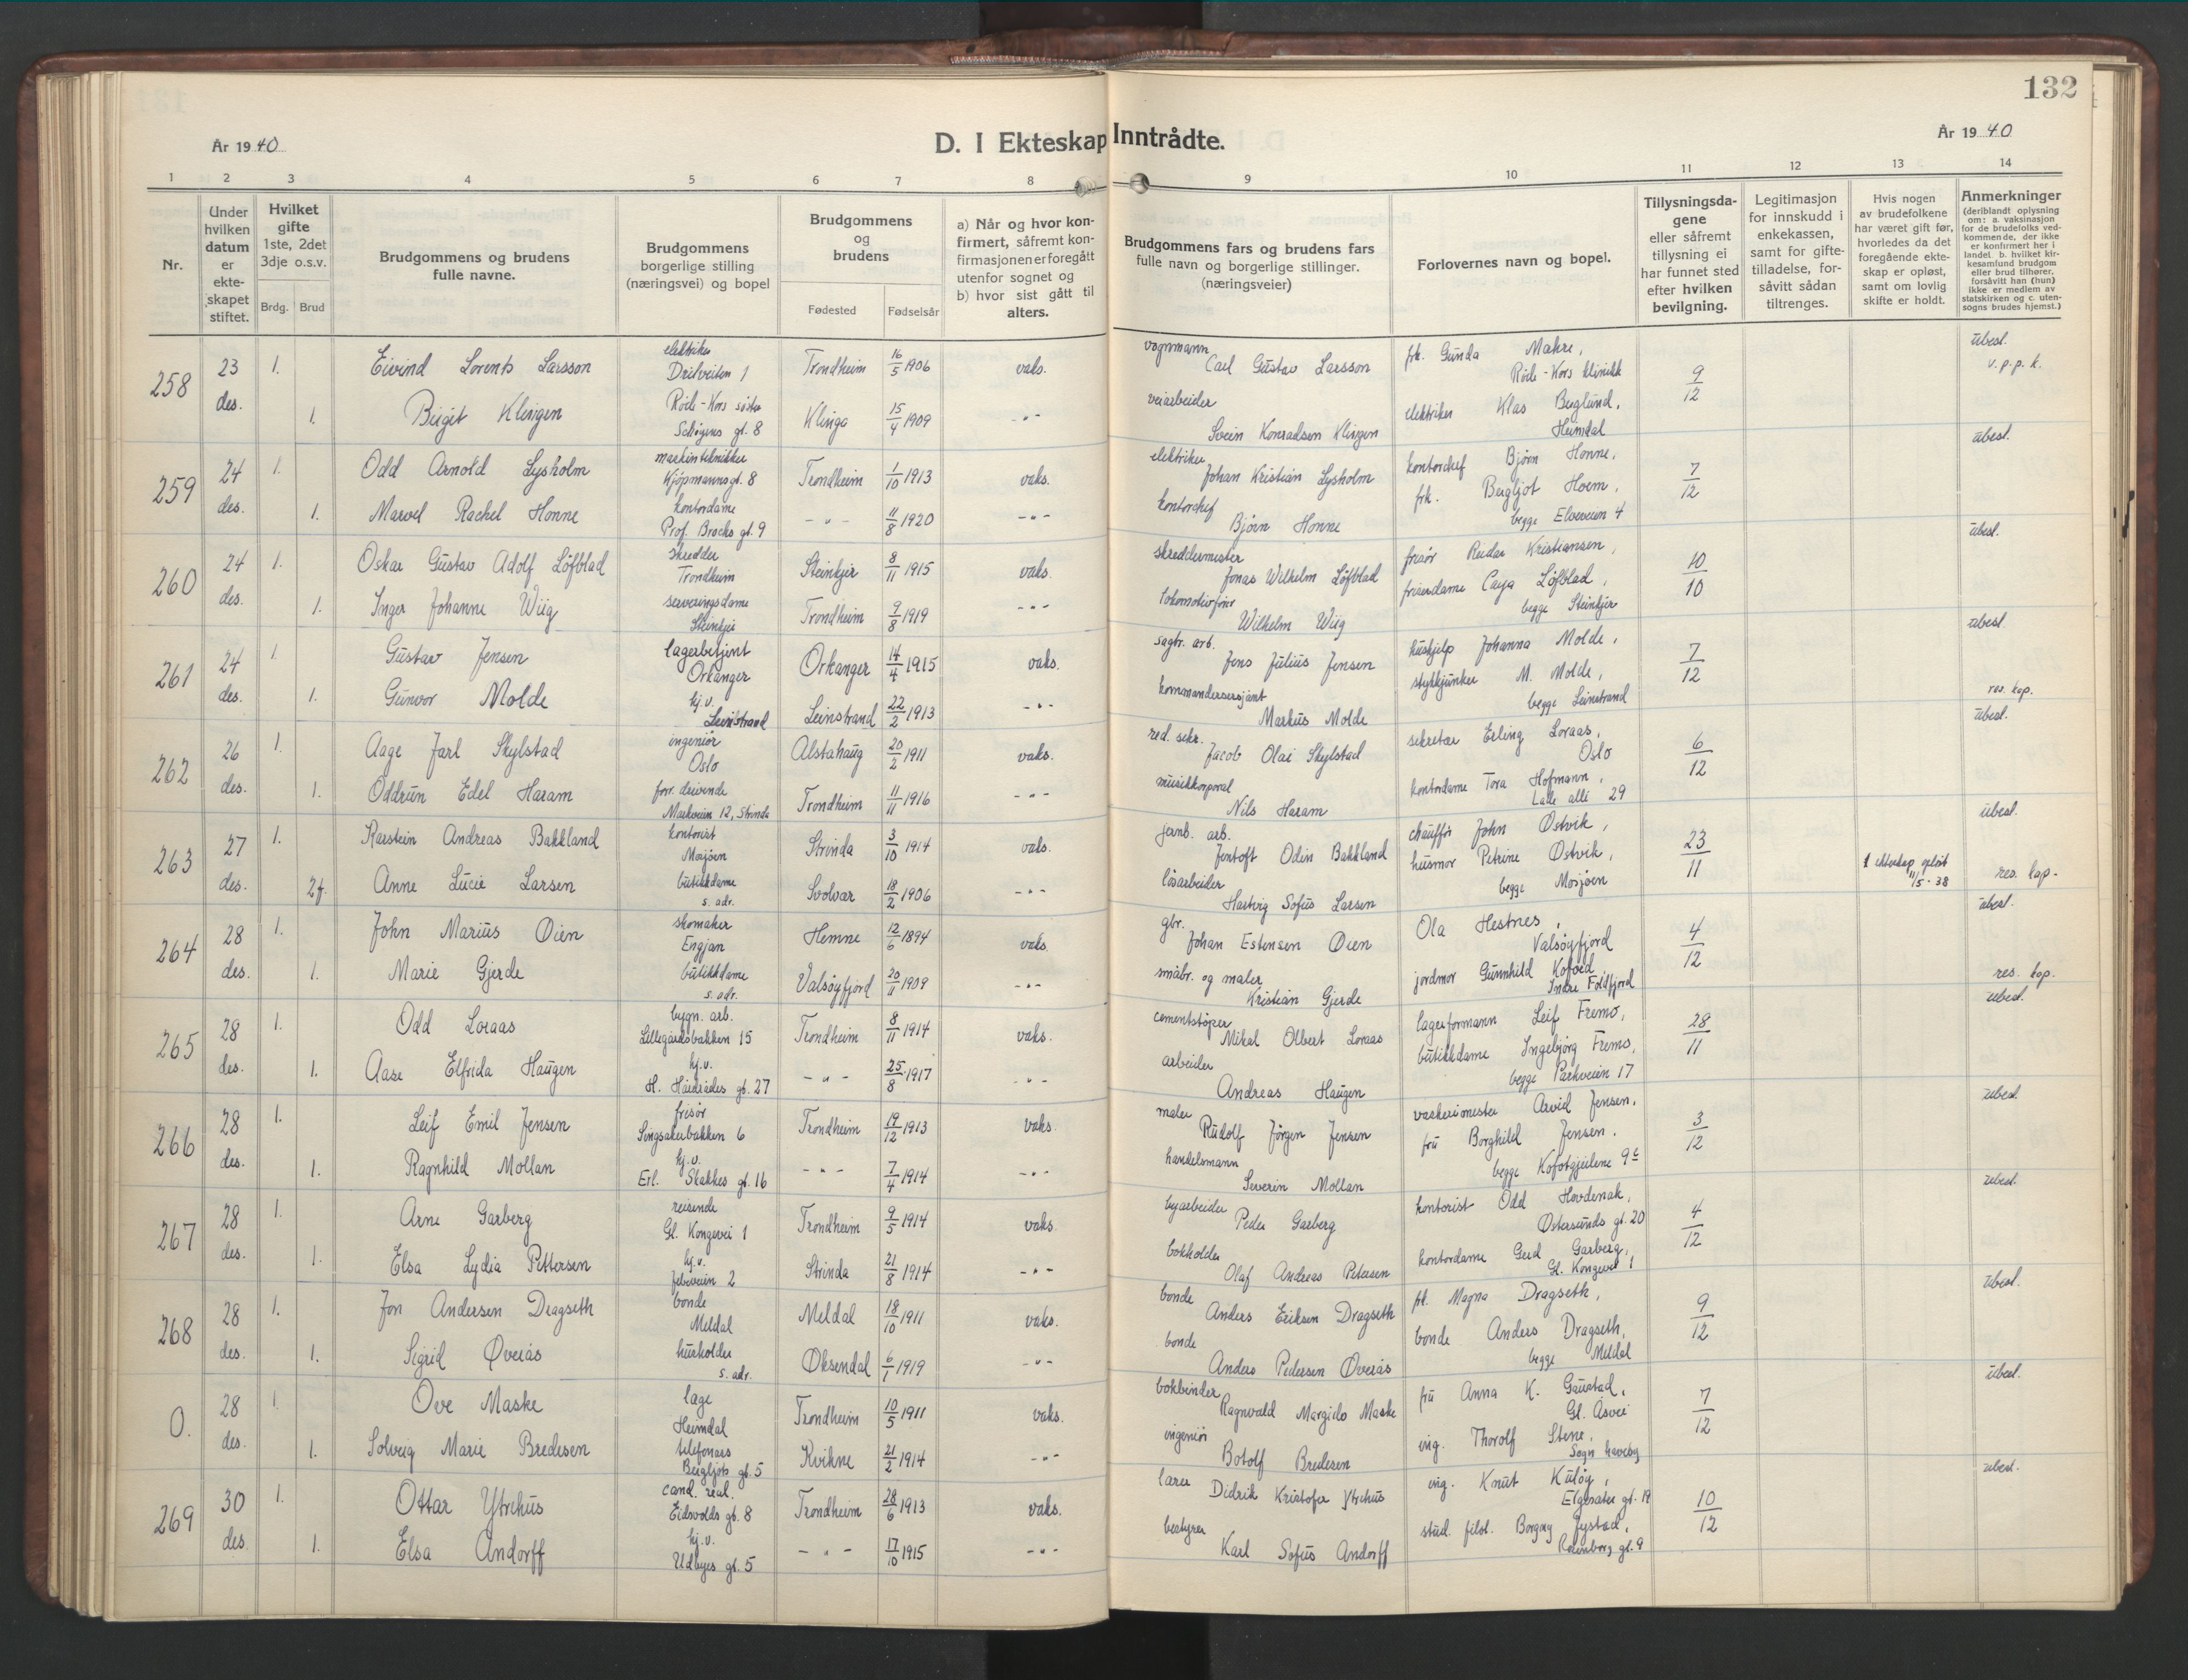 132
År 1940
D. I Ekteskap Inntrådte.
År 1940
1 2 3 4 5 6 7 8 9 10 11 12 13 14
Nr.
Under hvilken datum er ekteskapet stiftet.
Hvilket gifte 1ste, 2det 3dje o.s.v.
Brdg. Brud
Brudgommens og brudens fulle navne.
Brudgommens borgerlige stilling (næringsvei) og bopel
Brudgommens og brudens
Fødested Fødselsår
a) Når og hvor konfirmert, såfremt konfirmasjonen er foregått utenfor sognet og b) hvor sist gått til alters.
Brudgommens fars og brudens fars fulle navn og borgerlige stillinger. (næringsveier)
Forlovernes navn og bopel.
Tillysningsdagene eller såfremt tillysning ei har funnet sted efter hvilken bevilgning.
Legitimasjon for innskudd i enkekassen, samt for giftetilladelse, forsåvitt sådan tiltrenges.
Hvis nogen av brudefolkene har været gift før, hvorledes da det foregående ekteskap er opløst, samt om lovlig skifte er holdt.
Anmerkninger (deriblandt oplysning om: a. vaksinasjon for de brudefolks vedkommende, der ikke er konfirmert her i landet b. hvilket kirkesamfund brudgom eller brud tilhører, forsåvitt han (hun) ikke er medlem av statskirken og c. utensogns brudes hjemst.)
258 23 des. 1. Eivind Lorents Larsson elektriker Trondheim 16/5 1906 vaks. vognmann Carl Gustav Larsson frk. Gunda Makre, Røde-Kors klinikk 9/12 ubesl. v.p.p.k.
1. Birgit Klingen Røde-Kors søster Schøgens gt. 8 Klinga 15/4 1909 -"- veiarbeider Svein Konradsen Klingen elektriker Klas Berglund, Heimdal
259 24 des. 1. Odd Arnold Lysholm maskintekniker Kjøpmannsgt. 8 Trondheim 1/10 1913 vaks. elektriker Johan Kristian Lysholm kontorchef Bjørn Honne, 7/12 ubesl.
1. Marvel Rachel Honne kontordame Prof. Brochs gt. 9 -"- 11/8 1920 -"- kontorchef Bjørn Honne frk. Bergljot Hoem, begge Elveveien 4
260 24 des. 1. Oskar Gustav Adolf Löfblad skredder Trondheim Steinkjer 8/11 1915 vaks. skreddermester Jonas Wilhelm Löfblad frisør Reidar Kristiansen, 10/10 ubesl.
1. Inger Johanne Wiig serveringsdame Steinkjer Trondheim 9/8 1919 -"- lokomotivfører Wilhelm Wiig friserdame Caya Löfblad, begge Steinkjer
261 24 des. 1. Gustav Jensen lagerbetjent Orkanger Orkanger 14/4 1915 vaks. sagbr. arb. Jens Julius Jensen hushjelp Johanna Molde, 7/12 ubesl.
1. Gunvor Molde hj.v. Leinstrand Leinstrand 22/2 1913 -"- kommandersersjant Markus Molde stykkjunker M. Molde, begge Leinstrand res. kap.
262 26 des. 1. Aage Jarl Skylstad ingeniør Oslo Alstahaug 20/2 1911 vaks. red. sekr. Jacob Olai Skylstad sekretær Erling Loraas, Oslo 6/12 ubesl.
1. Oddrun Edel Haram forr. drivende Markveien 12, Strinda Trondheim 11/11 1916 -"- musikkorporal Nils Haram kontordame Tora Hofmann, Lade alle 29
263 27 des. 1. Karstein Andreas Bakkland kontorist Mosjøen Strinda 3/10 1914 vaks. jernb. arb. Jentoft Odin Bakkland chauffør John Østvik, 23/11 ubesl.
2g. Anne Lucie Larsen butikkdame s. adr. Svolvær 18/2 1906 -"- løsarbeider Hartvig Sofus Larsen husmor Petrine Østvik, begge Mosjøen 1 ekteskap opløst 11/5-38 res. kap.
264 28 des. 1. John Marius Øien skomaker Engjan Hemne 12/6 1894 vaks gbr. Johan Estensen Øien Ola Hestnes, Valsøyfjord 4/12 ubesl.
1. Marie Gjerde butikkdame s. adr. Valsøyfjord 20/11 1909 -"- småbr. og maler Kristian Gjerde jordmor Gunnhild Kofoed Indre Foldfjord res. kap.
265 28 des. 1. Odd Loraas bygn. arb. Lillegårdsbakken 15 Trondheim 8/11 1914 vaks. cementstøper Mikal Olbert Loraas lagerformann Leif Fremo, 28/11 ubesl.
1. Aase Elfrida Haugen hj.v. H. Hardrådes gt. 27 -"- 25/8 1917 -"- arbeider Andreas Haugen butikkdame Ingebjørg Fremo, begge Parkveien 17
266 28 des. 1. Leif Emil Jensen frisør Singsakerbakken 6 Trondheim 19/12 1913 vaks. maler Rudolf Jørgen Jensen vaskerimester Arvid Jensen, 3/12 ubesl.
1. Ragnhild Mollan hj.v. Erl. Skakkes gt. 16 -"- 7/4 1914 -"- handelsmann Severin Mollan fru Borghild Jensen. begge Kofotgjeilene 9c
267 28 des. 1. Arne Garberg reisende Gl. Kongevei 1 Trondheim 9/5 1914 vaks. byarbeider Peder Garberg kontorist Odd Hovdenak, Østersunds gt. 20 4/12 ubesl.
1. Elsa Lydia Pettersen hj.v. 2 Strinda 21/8 1914 -"- bokholder Olaf Andreas Petersen kontordame Gerd Garberg, Gl. Kongevei 1
268 28 des. 1. Jon Andersen Dragseth bonde Meldal Meldal 18/10 1911 vaks. bonde Anders Eriksen Dragseth frk. Magna Dragseth, 9/12 ubesl.
1. Sigrid Øverås husholder s. adr. Øksendal 6/1 1919 -"- bonde Anders Pedersen Øverås bonde Anders Dragseth, begge Meldal
0. 28 des. 1. Ove Maske læge Heimdal Trondheim 10/5 1911 vaks. bokbinder Ragnvald Margido Maske fru Anna K. Gaustad, Gl. Åsvei 7/12 ubesl.
1. Solveig Marie Bredesen telefonass Bergljots gt. 5 Kvikne 21/2 1914 -"- ingeniør Botolf Bredesen ing. Thorolf Stene, Sogn haveby
269 30 des. 1. Ottar Ytrehus cand. real. Eidsvolds gt. 8 Trondheim 28/6 1913 vaks. lærer Didrik Kristofer Ytrehus ing. Knut Kuløy, Elgeseter gt. 19 10/12 ubesl.
1. Elsa Andorff hj.v. Udbyes gt. 5 -"- 17/10 1915 -"- bestyrer Karl Sofus Andorff stud. filol. Borgny Jystad, Rosenborg gt. 9